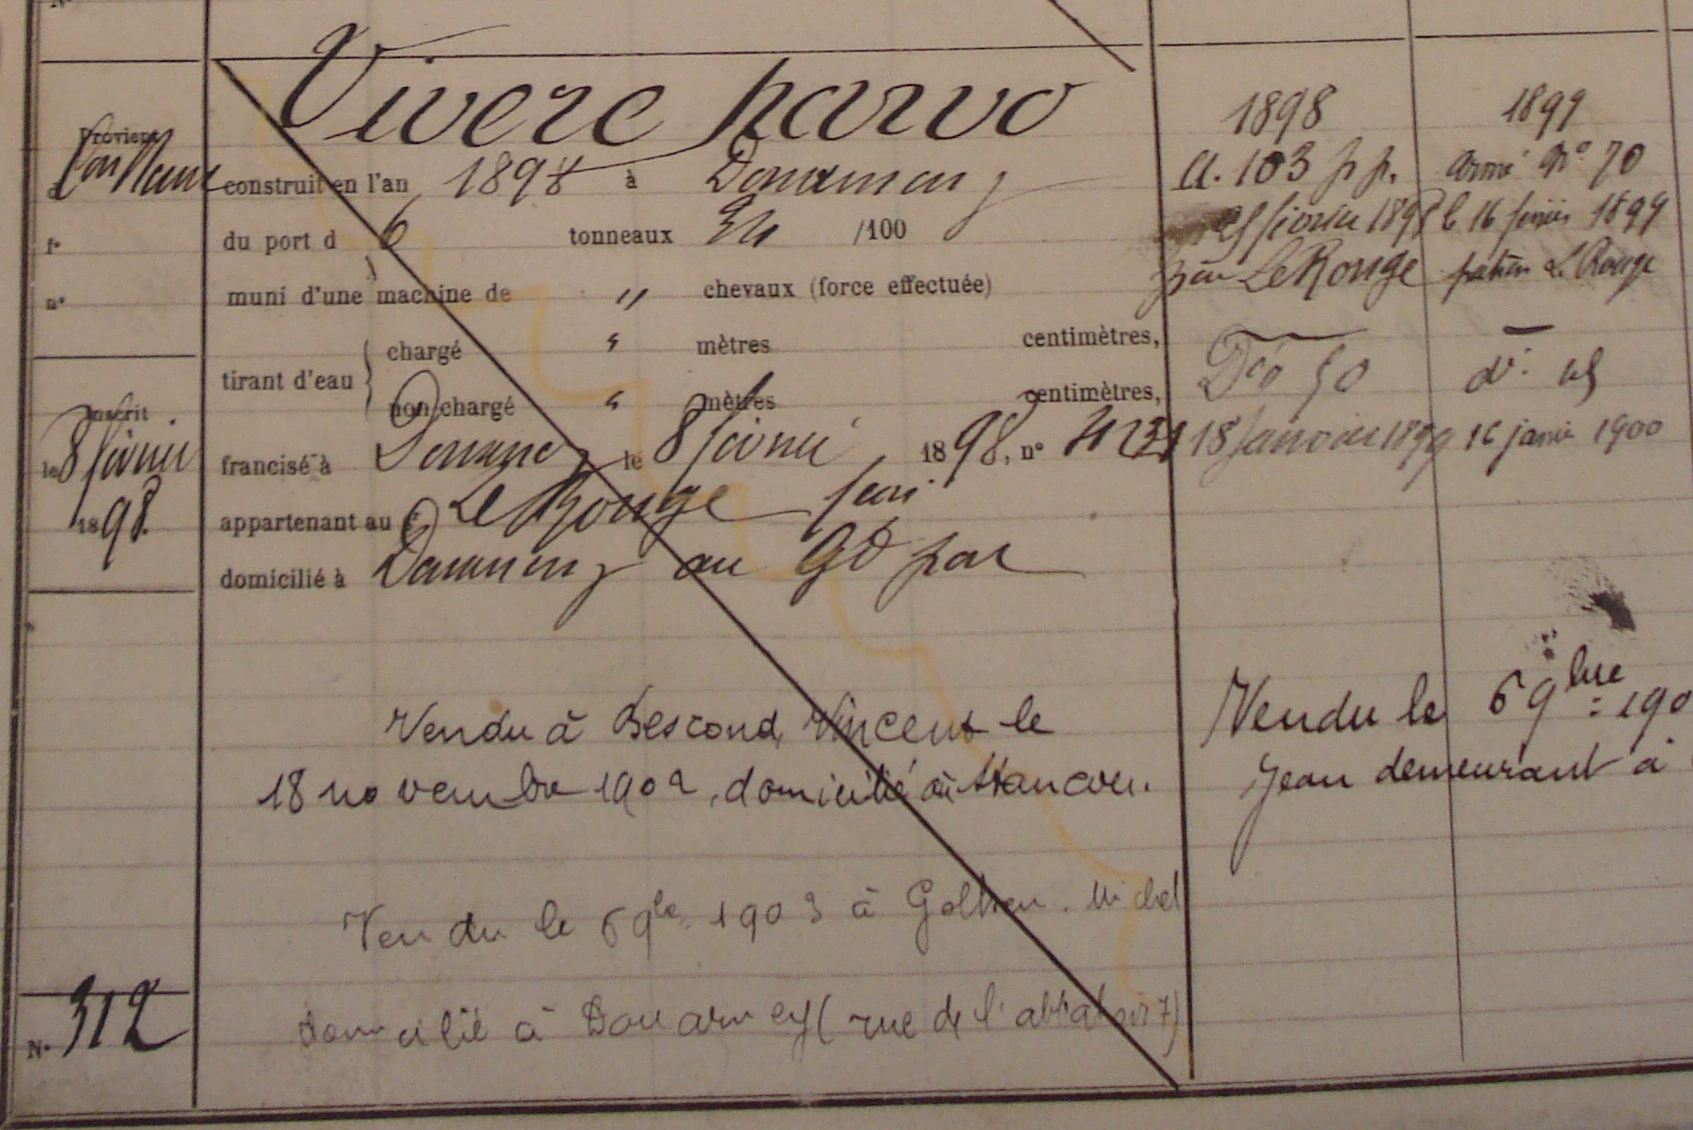 Vivere parvo
Provient
d
construit en l'an 1898 à Douarnenez
fº
du port d 6 tonneaux 34 /100
nº
muni d'une machine de " chevaux (force effectuée)
tirant d'eau { chargé " mètres centimètres,
non chargé " mètres centimètres,
Inscrit
le 8 février
1898.
francisé à Douarnenez le 8 février 1898, nº
appartenant au Le Rouge
domicilié à Douarnenez au Gd port
Vendu à Bescond, Vincent le
18 novembre 1902, domicilié à
Vendu le 6 9bre 1903 à Michel
domicilié à Douarnenez (rue de l'abbatoir 7)
Nº 312
1898
A. 103 p p.
février 1898
par Le Rouge
Dço 50
18 Janvier 1899
1899
armé Nº 70
le 16 février 1899
patron Le Rouge
dº:
16 janvier 1900
Vendu le 6 9bre 190
Jean demeurant à